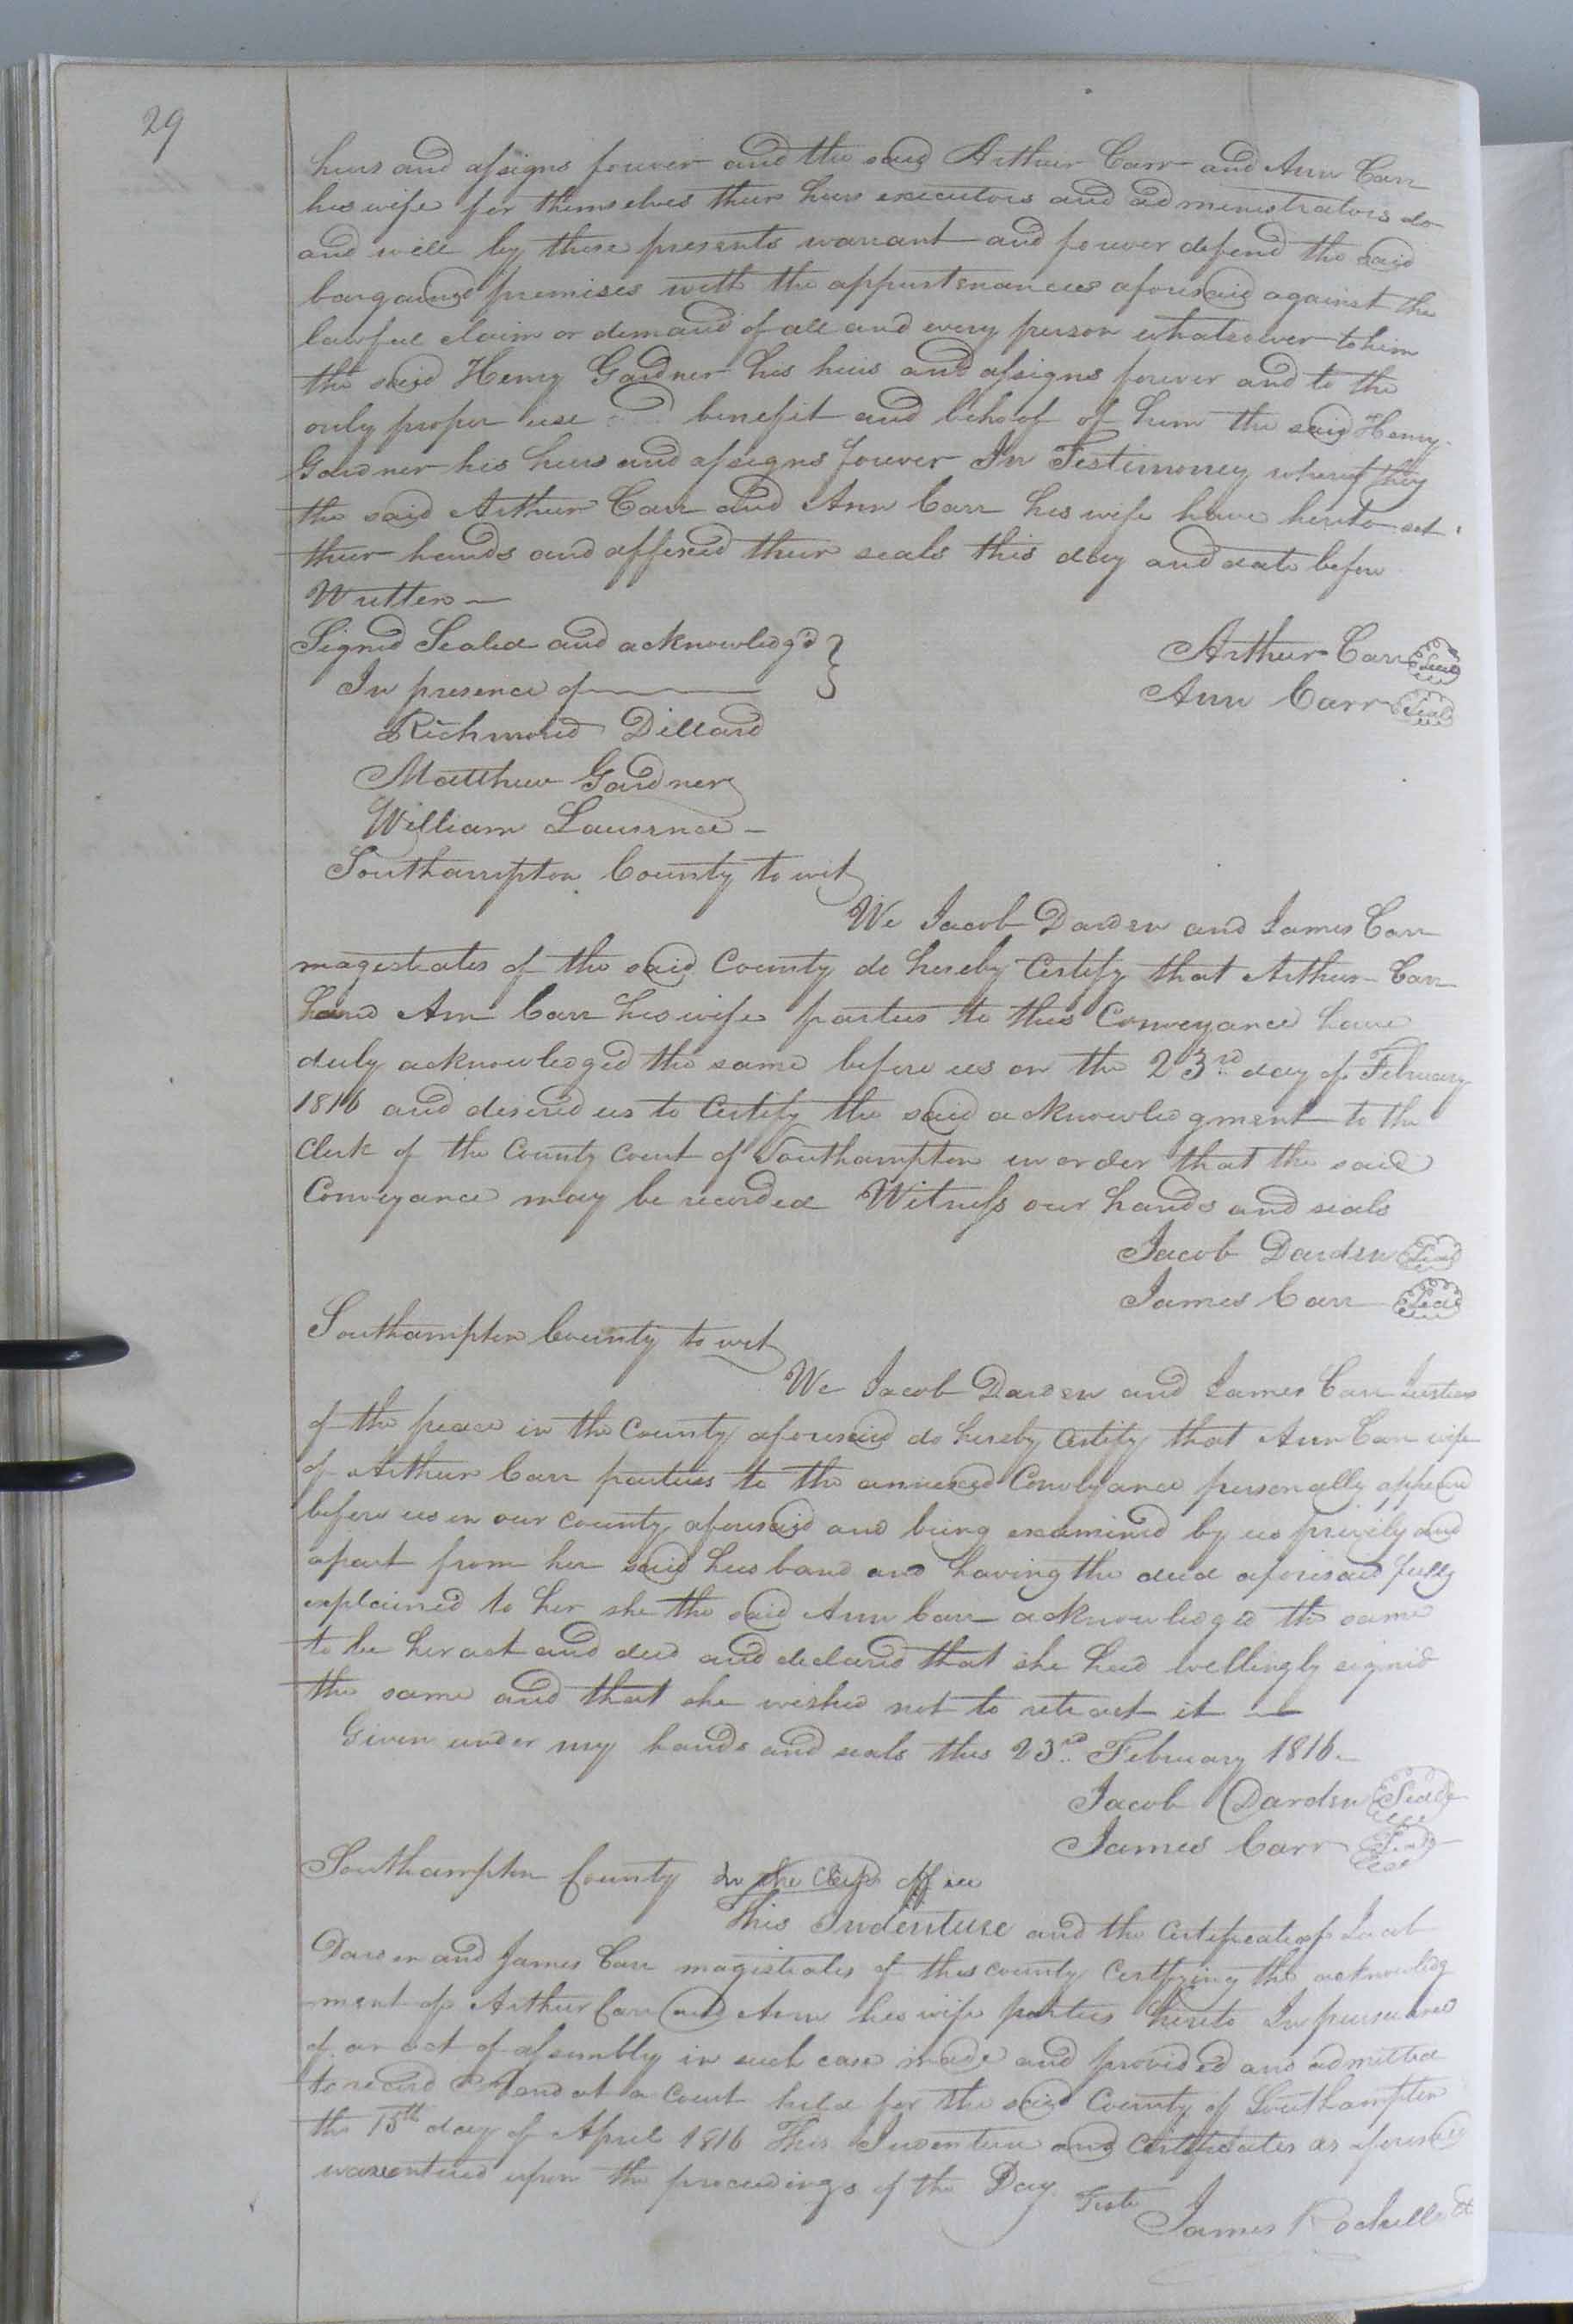 29
heirs and assigns forever and the said Arthur Carr and Ann Carr
his wife for themselves their heirs executors and administrators do
and will by these presents warrant and forever defend the said
bargained premises with the appurtenances aforesaid against the
lawful claim or demand of all and every person whatsoever to him
the said Henry Gardner his heirs and assigns forever and to the
only proper use benefit and behoof of him the said Henry
Gardner his heirs and assigns forever In Testimoney whereof they
the said Arthur Carr and Ann Carr his wife have hereto set
their hands and affixed their seals this day and date before
Written
Signed Sealed and acknowledg'd }
In presence of
Arthur Carr Seal
Ann Carr Seal
Richmond Dillard
Matthew Gardner
William Lawrence
Southampton County to wit
We Jacob Darden and James Carr
magestrates of the said County do hereby Certify that Arthur Carr
and Ann Carr his wife parties to this Conveyance have
duly acknowledged the same before us on the 23rd day of February
1816 and desired us to Certify the said acknowledgment to the
Clerk of the County Court of Southampton in order that the said
Conveyance may be recorded Witness our hands and seals
Jacob Darden Seal
James Carr Seal
Southampton County to wit
We Jacob Darden and James Carr Justices
of the peace in the County aforesaid do hereby Certify that Ann Carr wife
of Arthur Carr parties to the annexed Conveyance personally appeared
before us in our county aforesaid and being examined by us privily and
apart from her said husband and having the deed aforesaid fully
explained to her she the said Ann Carr acknowledged the same
to be her act and deed and declared that she had willingly signed
the same and that she wished not to retract it
Given under my hands and seals this 23rd February 1816
Jacob Darden Seal
James Carr Seal
Southampton County In the Clerks office
This Indenture and the Certificate of Jacob
Darden and James Carr magistrates of this county Certfying the acknowledg
ment of Arthur Carr and Ann his wife parties hereto In pursuance
of an act of assembly in such case made and provided and admitted
to record And at a Court held for the said County of Southampton
the 15th day of April 1816 This Indenture and Certificates as aforesaid
was entered upon the proceedings of the Day
Teste
James Rochelle